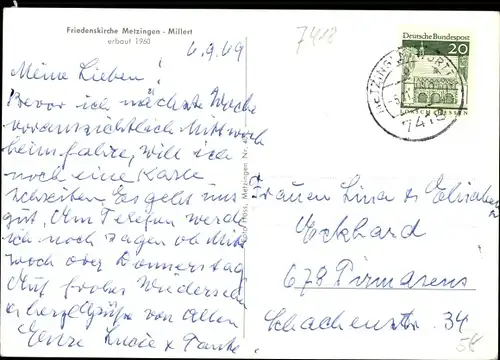 Friedenskirche Metzingen - Millert
erbaut 1960
6.9.69
Meine Lieben!
Bevor ich nächste Woche
voraussichtlich Mittwoch
heimfahre, will ich
noch eine Karte
schreiben. Es geht uns
gut. Am Telefon werde
ich noch sagen ob Mitt
woch oder Donnerstag
Auf frohes Wiedersehen
u herzl. Grüße von allen
Eure Lucie u Tante
7418
Deutsche Bundespost
20
LORSCH HESSEN
7418
Foto Metzingen Nr.
Frauen Lina u Elisabeth
Eckhard
678 Pirmasens
Schachenstr. 34
58